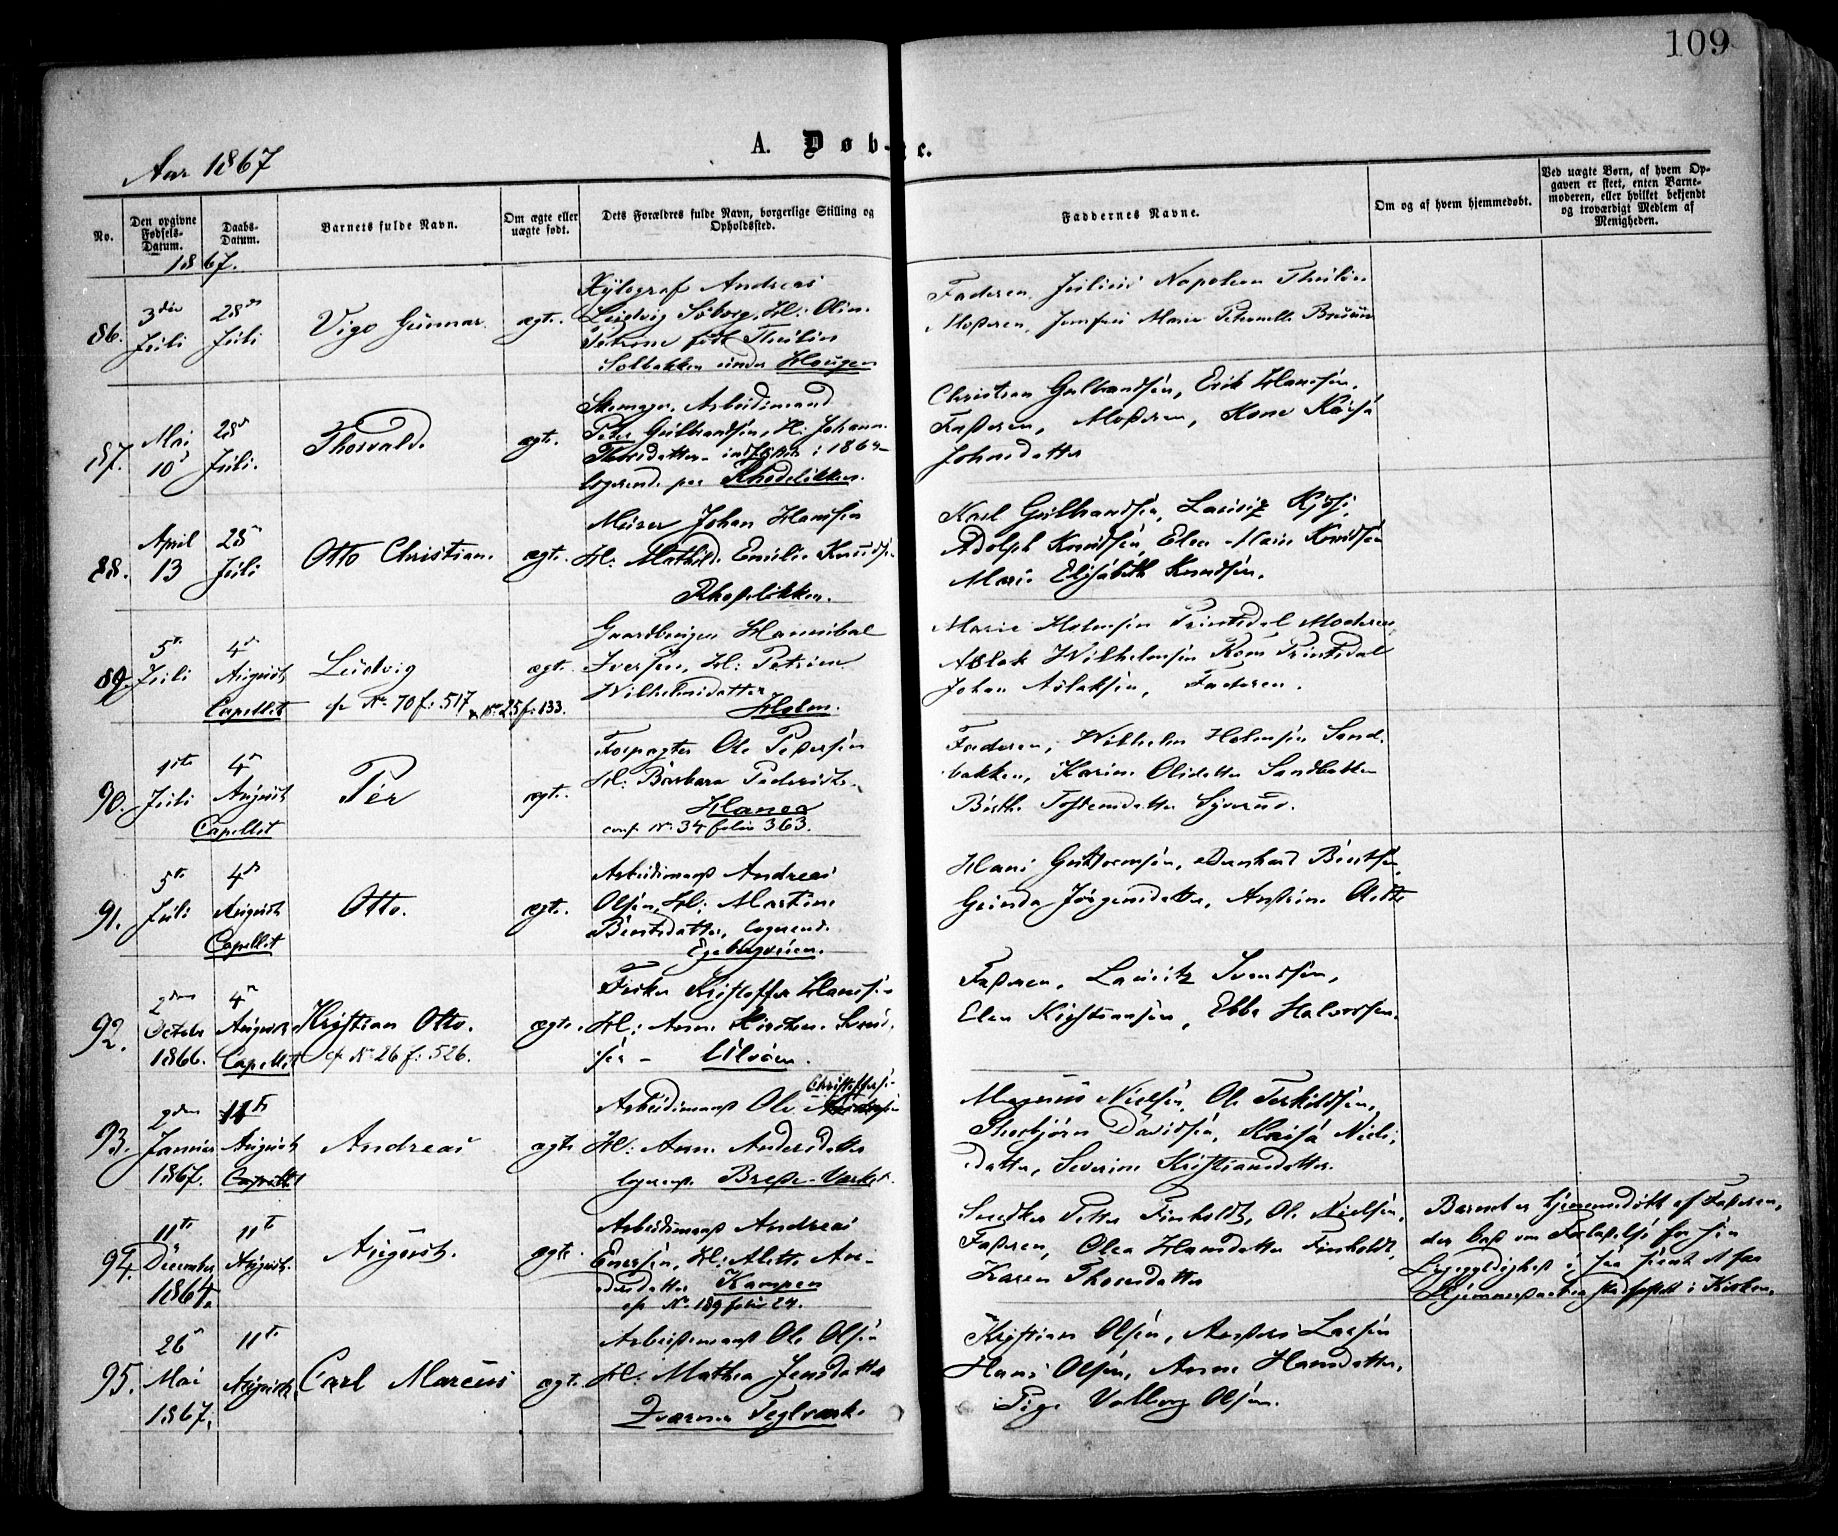 109
A. Døb-te.
Aar 1867
No.
Den opgivne Fødsels-Datum.
Daabs-Datum.
Barnets fulde Navn.
Om ægte eller uægte født.
Dets Forældres fulde Navn, borgerlige Stilling og Opholdssted.
Faddernes Navne.
Om og af hvem hjemmedøbt.
Ved uægte Børn, af hvem Opgaven er skeet, enten Barnemoderen, eller hvilket bekjendt og troværdigt Medlem af Menigheden.
1867.
86. 3die Juli
28de Juli
Vigo Gunnar.
ægte.
Xylograf Andreas
Ludvig Söborg, H: Oline
Petrine född Thulin
Solbakken under Haugen
Faderen, Julius Napoleon Thulin
Moderen, Jomfru Marie Petronelle Bruun
87. Mai 10
28 Juli.
Thorvald.
ægte.
Skomager, Arbeidsmand
Peder Gulbrandsen, H: Johanne
Thorsdatter
logerende paa Rhodeløkken.
Christian Gulbrandsen, Erik Hansen,
Faderen, Moderen, Kone Kaisa
Johnsdatter
88. April 13
28 Juli
Otto Christian.
ægte.
Murer Johan Hansen
H: Mathilde Emilie Knudsen
Rhodeløkken.
Karl Gulbrandsen, Lauritz
Adolph Knudsen, Elen Marie Knudsen
Marie Elisabeth Knudsen.
89. 5te Juli
4de August
Capellet
Ludvig
cfr No 70 f: 517, No 25 f: 133.
ægte.
Gaardbruger Hannibal
Iversen, H: Petrine
Wilhelmsdatter
Holm.
Marie Holmsen Printsdal Moderen
Aslak Wilhelmsen Printsdal
Johan Aslaksen, Faderen.
90. 1ste Juli
4de August
Capellet
Per
ægte.
Forpagter Ole Pedersen
H: Barbara Pedersdtr.
conf. No 34 folio 363.
Faderen, Wilhelm Holmsen Sand-
bakken, Karine Olsdatter Sandbakken
Birthe Tostensdatter
91. 5te Juli
4de August
Capellet
Otto.
ægte.
Arbeidsmand Andreas
Olsen, H: Martine
Berntsdatter, logerende
Egebergveien.
Hans Guttormsen, Bernhard Berntsen
Gunda Jørgensdatter,
92. 2den October 1866.
4de August
Capellet
Kristian Otto.
cfr No 26 f: 526.
ægte.
Fisker Kristoffer Hansen
H: Anne Kirstine Svend-
sen – Ulvøen.
Faderen, Lauritz Svendsen,
Elen Kristiansen, Ebbe Halvorsen.
93. 2den Januar 1867.
11te August
Capellet
Andreas
ægte
Arbeidsmand Ole Christoffersen
H: Anne Andersdatter
logerende
Magnus Nielsen, Ole Terkildsen,
Thorbjörn Davidsen, Kaisa Niels-
datter, Severine Kristiansdatter.
94. 11te December 1864.
11te August.
August.
ægte
Arbeidsmand Andreas
Enersen, H: Alette An-
dersdatter Kampen
cfr No 189 folio 24.
Snedker Petter Finholdt, Ole Nielsen,
Faderen, Olea Hansdatter Finholdt,
Karen Thorsdatter
Barnet er hjemmedöbt af Faderen,
der bad om Forladelse for sin
Ligegyldighed i saa seent at faa
Hjemmedaaben stadfæstet i Kirken.
95. 26 Mai 1867.
11te August.
Carl Marcus
ægte.
Arbeidsmand Ole Olsen
H: Mathea Jensdatter
Kværner Teglværk.
Kristian Olsen, Anders Larsen
Hans Olsen, Anne Hansdatter,
Pige Valborg Olsen.